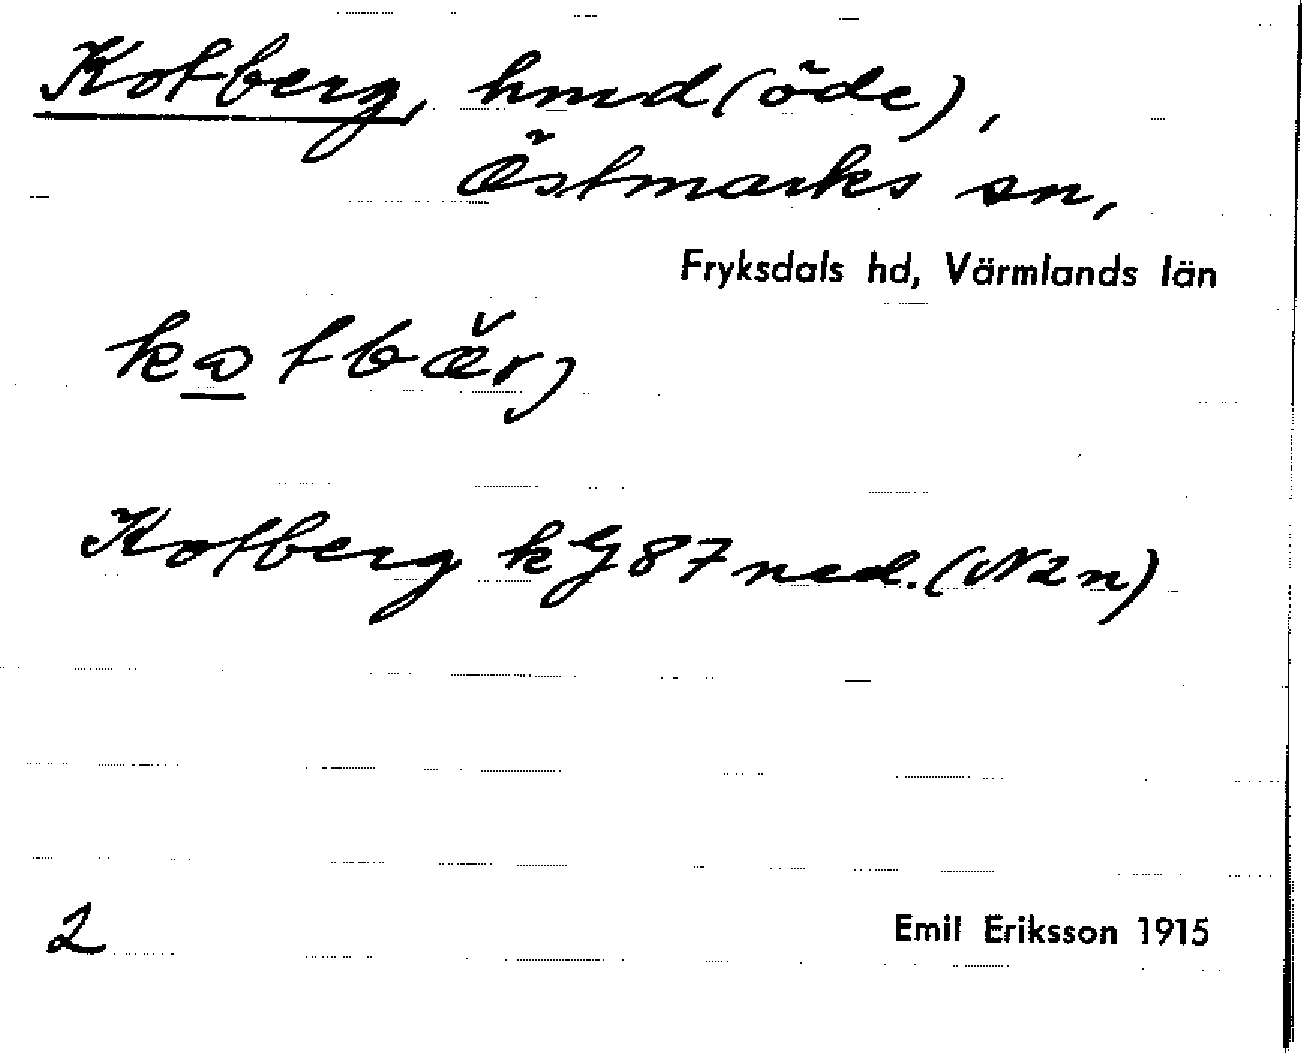 Kotberg, hmd (öde),
Östmarks sn,
Fryksdals hd, Värmlands län
Kotberg kG 87 ned. (N2n)
2
Emil Eriksson 1915